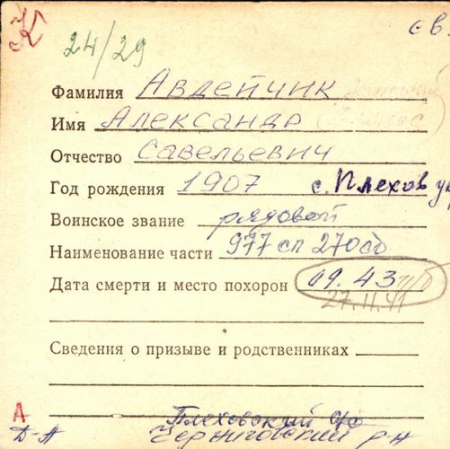 К
24/29
Фамилия Авдейчик
Имя Александр
Отчество Савельевич
Год рождения 1907 с. Плехов
Воинское звание рядовой
Наименование части 977 сп 270 сд
Дата смерти и место похорон 09.43
27.11.41
Сведения о призыве и родственниках
А
Д-П
Плеховский с/с
Черниговский р-н